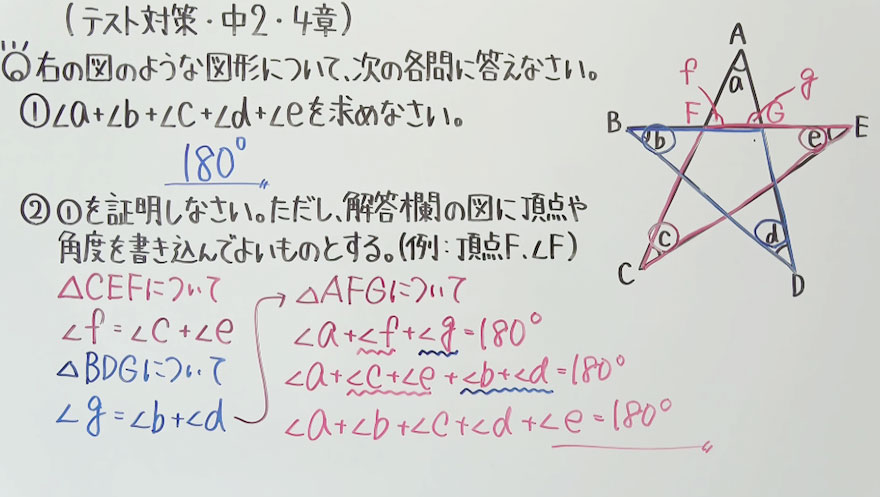 (テスト対策・中2・4章)
Q右の図のような図形について、次の各問に答えなさい。
①∠a+∠b+∠c+∠d+∠eを求めなさい。
180°
②①を証明しなさい。ただし、解答欄の図に頂点や
角度を書き込んでよいものとする。(例:頂点F、∠F)
△CEFについて
∠f=∠c+∠e
△BDGについて
∠g=∠b+∠d
△AFGについて
∠a+∠f+∠g=180°
∠a+∠c+∠e+∠b+∠d=180°
∠a+∠b+∠c+∠d+∠e=180°
A
f
a
g
B
F
G
E
b
e
c
d
C
D